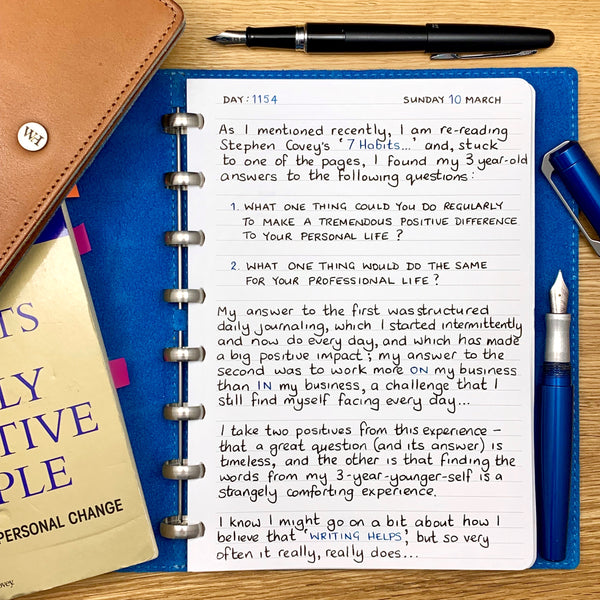 DAY: 1154 SUNDAY 10 MARCH
As I mentioned recently, I am re-reading
Stephen Covey's '7 Habits...' and, stuck
to one of the pages, I found my 3 year-old
answers to the following questions:
1. WHAT ONE THING COULD YOU DO REGULARLY
TO MAKE A TREMENDOUS POSITIVE DIFFERENCE
TO YOUR PERSONAL LIFE?
2. WHAT ONE THING WOULD DO THE SAME
FOR YOUR PROFESSIONAL LIFE?
My answer to the first was structured
daily journaling, which I started intermittently
and now do every day, and which has made
a big positive impact; my answer to the
second was to work more ON my business
than IN my business, a challenge that I
still find myself facing every day...
I take two positives from this experience –
that a great question (and its answer) is
timeless, and the other is that finding the
words from my 3-year-younger-self is a
strangely comforting experience.
I know I might go on a bit about how I
believe that 'WRITING HELPS', but so very
often it really, really does...
TS
LY
TIVE
PLE
PERSONAL CHANGE
ovey